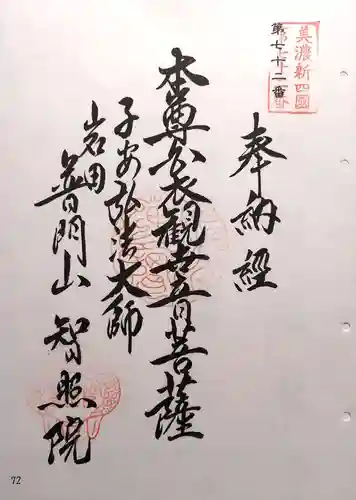 美濃新四國
第七十二番
奉納経
本尊公衣観世音菩薩
子安弘法大師
岩田
普門山 智照院
72